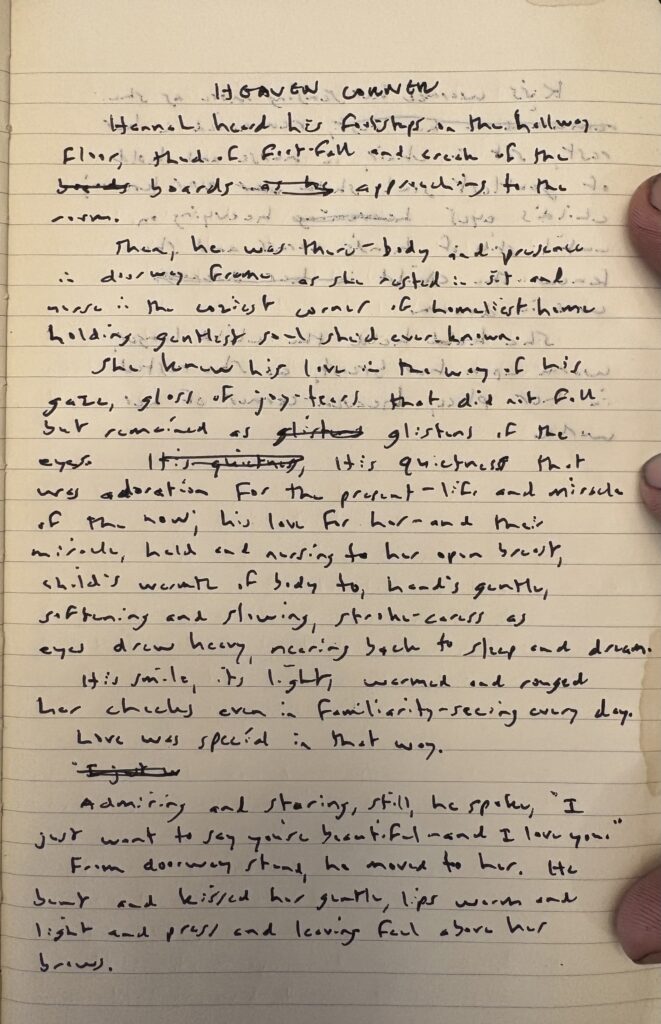 HEAVEN CORNER
Hannah heard his footsteps on the hallway
floor, thud of foot-fall and creak of the
boards boards as he approaching to the
room.
Then, he was there - body and presence
in doorway frame as she rested in sit and
nurse in the coziest corner of homeliest home
holding gentlest soul she'd ever known.
She knew his love in the way of his
gaze, gloss of joy-tears that did not fall
but remained as glistens of the
eyes. His quietness, His quietness that
was adoration for the present-life and miracle
of the now; his love for her - and their
miracle, held and nursing to her open breast,
child's warmth of body to, hand's gentle,
softening and slowing, stroke-caress as
eyes drew heavy, nearing back to sleep and dream.
His smile, its light, warmed and rouged
her cheeks even in familiarity-seeing every day.
Love was special in that way.
"I just w
Admiring and staring, still, he spoke, "I
just want to say you're beautiful - and I love you."
From doorway stand, he moved to her. He
bent and kissed her gentle, lips warm and
light and press and leaving feel above her
brows.